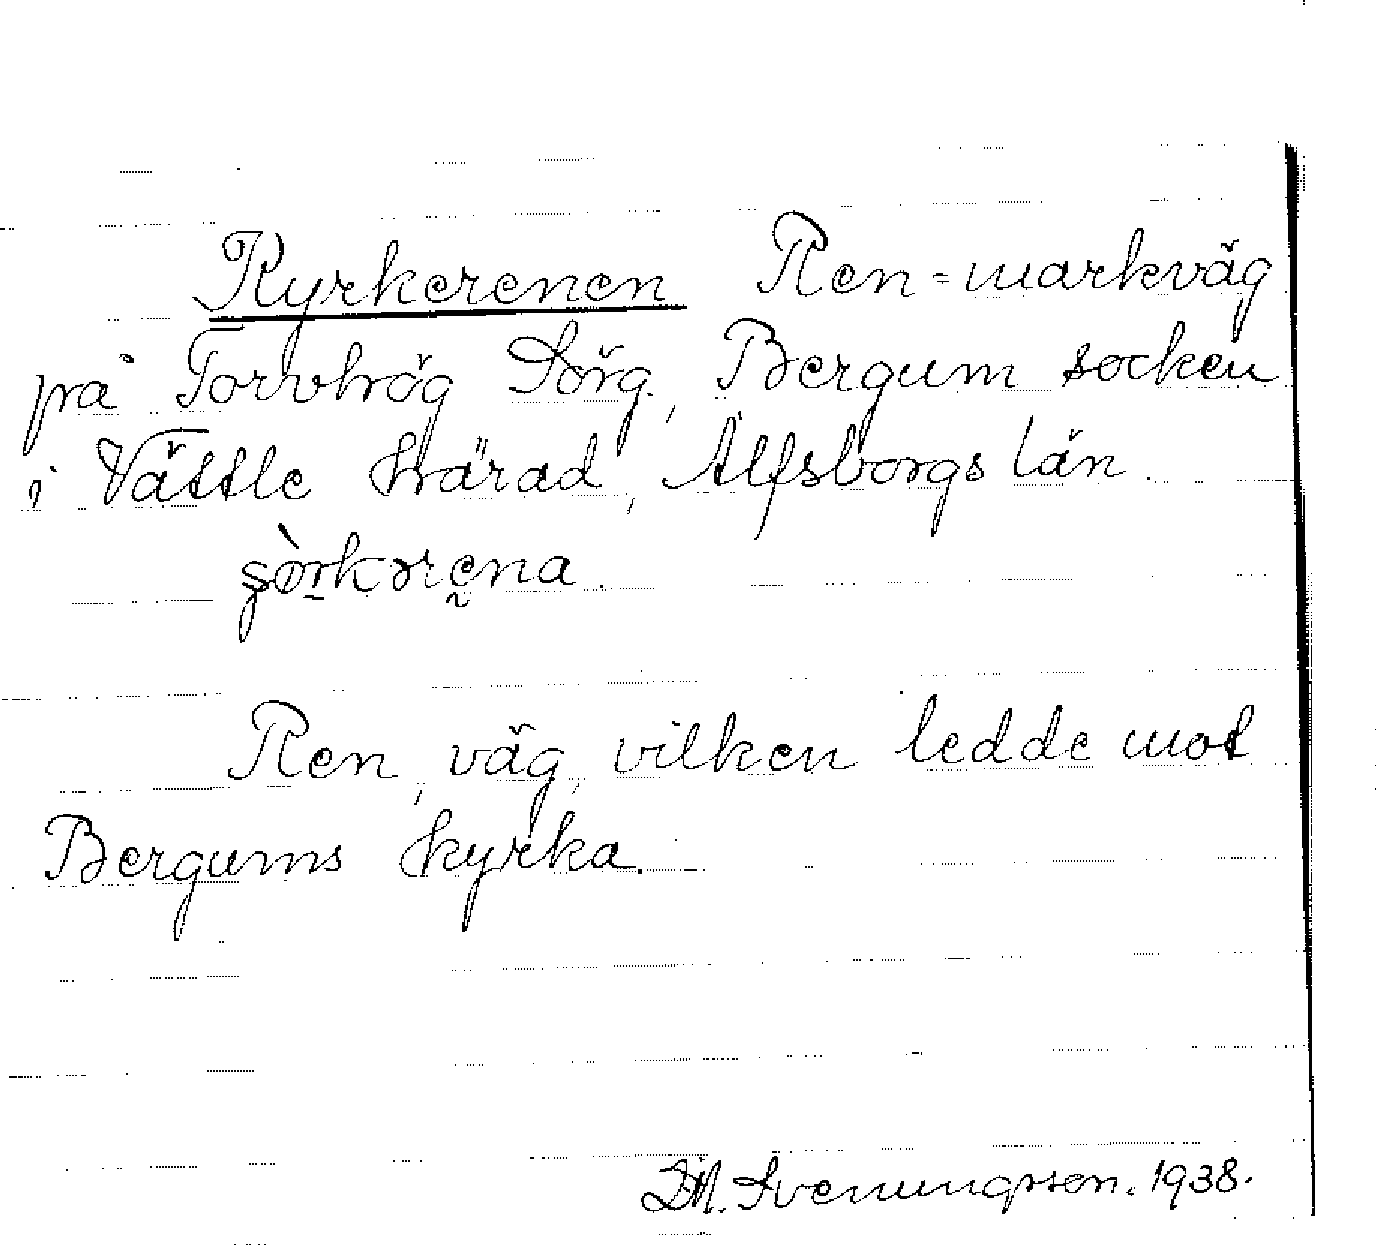 Kyrkerenen Ren = markväg
på Torvhög Sörg., Bergum socken
i Vättle härad, Älfsborgs län.
Ren, väg, vilken ledde mot
Bergums kyrka.
D.M. Svenungsson. 1938.